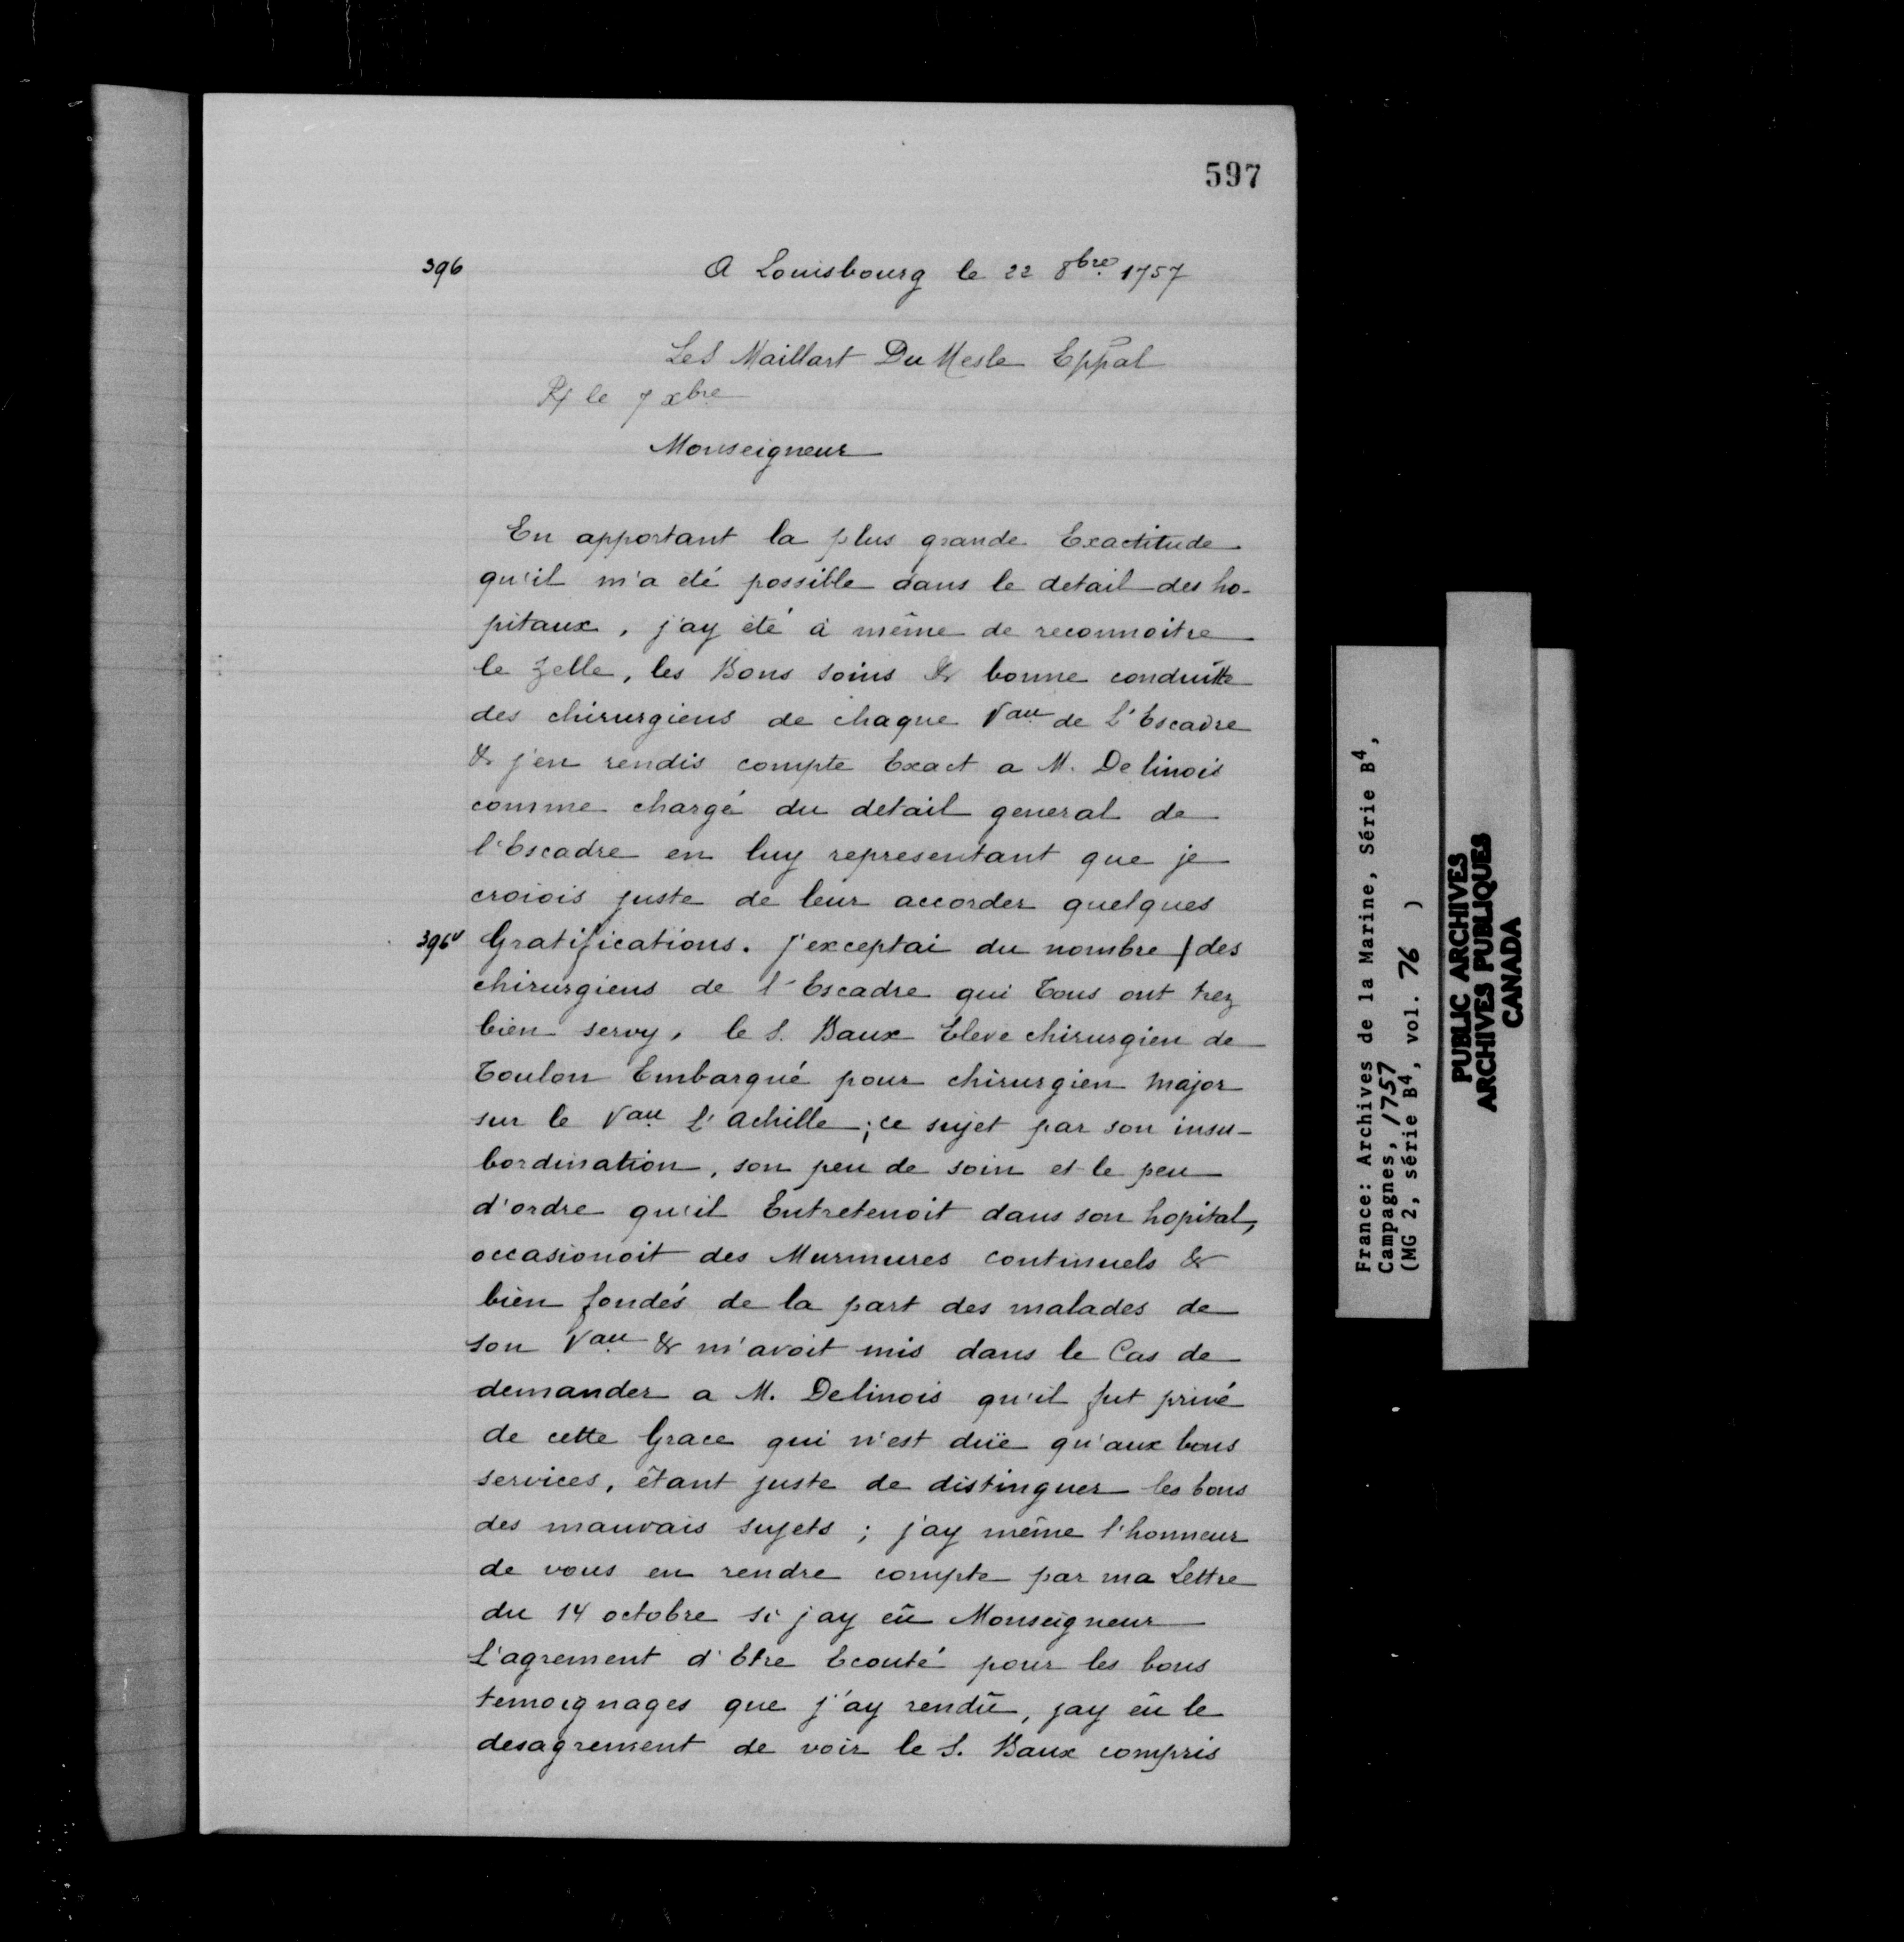 597
396
A Louisbourg le 22 8bre 1757
Le S Maillart Du Mesle Eppal
R/ le 7 xbre
Monseigneur
En apportant la plus grande Exactitude
qu'il m'a eté possible dans le detail des ho-
pitaux, j'ay été à même de reconnoitre
le zelle, les Bons soins & bonne conduitte
des chirurgiens de chaque Vau de L'Escadre
& j'en rendis compte Exact a M. Delinois
comme chargé du detail general de
l'Escadre en luy representant que je
croiois juste de leur accorder quelques
396v
Gratifications. j'exceptai du nombre / des
chirurgiens de l'Escadre qui Tous ont trez
bien servy, le S. Baux Eleve chirurgien de
Toulon Embarqué pour chirurgien Major
sur le Vau L'Achille; ce sujet par son insu-
bordination, son peu de soin et le peu
d'ordre qu'il Entretenoit dans son hopital,
occasionoit des Murmures continuels &
bien fondés de la part des malades de
son Vau & m'avoit mis dans le Cas de
demander a M. Delinois qu'il fut privé
de cette Grace qui n'est duë qu'aux bons
services, êtant juste de distinguer les bons
des mauvais sujets; j'ay même l'honneur
de vous en rendre compte par ma Lettre
du 14 octobre si jay eü Monseigneur
L'agrement d'Etre Ecouté pour les bons
temoignages que j'ay rendü, jay eu le
desagrement de voir le S. Baux compris
France: Archives de la Marine, Série B4,
Campagnes, 1757
(MG 2, série B4, vol. 76 )
PUBLIC ARCHIVES
ARCHIVES PUBLIQUES
CANADA